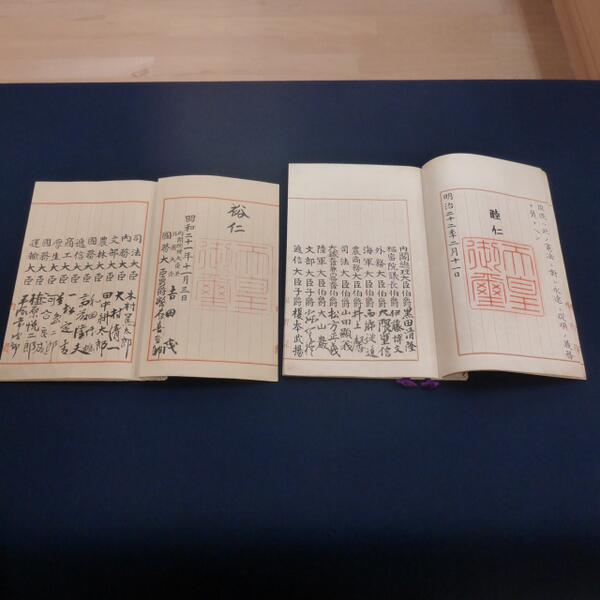 ハ此ノ憲法ニ對シ永遠ニ從順ノ義務
ヲ負フヘシ
睦仁
天皇
御璽
明治二十二年二月十一日
内閣總理大臣伯爵黒田清隆
樞密院議長伯爵伊藤博文
外務大臣伯爵大隈重信
海軍大臣伯爵西郷從道
農商務大臣伯爵井上馨
司法大臣伯爵山田顯義
大藏大臣兼内務大臣伯爵松方正義
陸軍大臣伯爵大山巖
文部大臣子爵森有禮
遞信大臣子爵榎本武揚
裕仁
天皇
御璽
昭和二十一年十一月三日
内閣總理大臣兼
外務大臣 吉田茂
國務大臣男爵幣原喜重郎
司法大臣 木村篤太郎
内務大臣 大村清一
文部大臣 田中耕太郎
農林大臣 和田博雄
國務大臣 斎藤隆夫
遞信大臣 一松定吉
商工大臣 星島二郎
厚生大臣 河合良成
國務大臣 植原悦二郎
運輸大臣 平塚常次郎